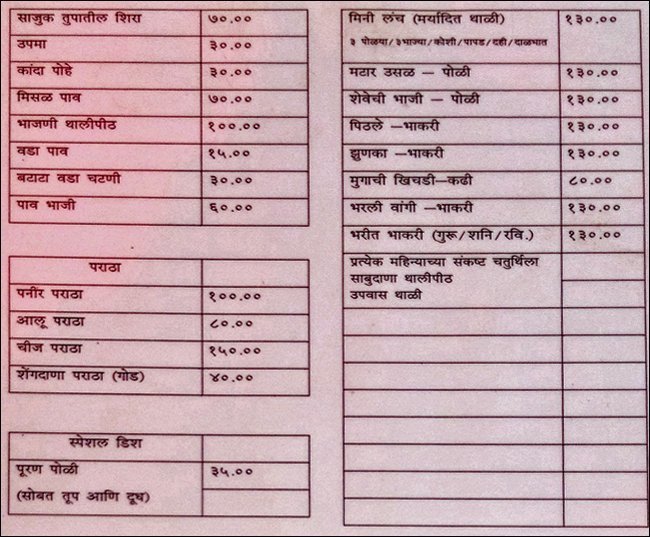 साजुक तुपातील शिरा ७०.००
उपमा ३०.००
कांदा पोहे ३०.००
मिसळ पाव ७०.००
भाजणी थालीपीठ १००.००
वडा पाव १५.००
बटाटा वडा चटणी ३०.००
पाव भाजी ६०.००
पराठा
पनीर पराठा १००.००
आलू पराठा ८०.००
चीज पराठा १५०.००
शेंगदाणा पराठा (गोड) ४०.००
स्पेशल डिश
पूरण पोळी ३५.००
(सोबत तूप आणि दूध)
मिनी लंच (मर्यादित थाळी) १३०.००
३ पोळ्या/३भाज्या/कोशी/पापड/दही/दाळभात
मटार उसळ – पोळी १३०.००
शेवेची भाजी – पोळी १३०.००
पिठले –भाकरी १३०.००
झुणका –भाकरी १३०.००
मुगाची खिचडी–कढी ८०.००
भरली वांगी –भाकरी १३०.००
भरीत भाकरी (गुरू/शनि/रवि.) १३०.००
प्रत्येक महिन्याच्या संकष्ट चतुर्थिला
साबुदाणा थालीपीठ
उपवास थाळी